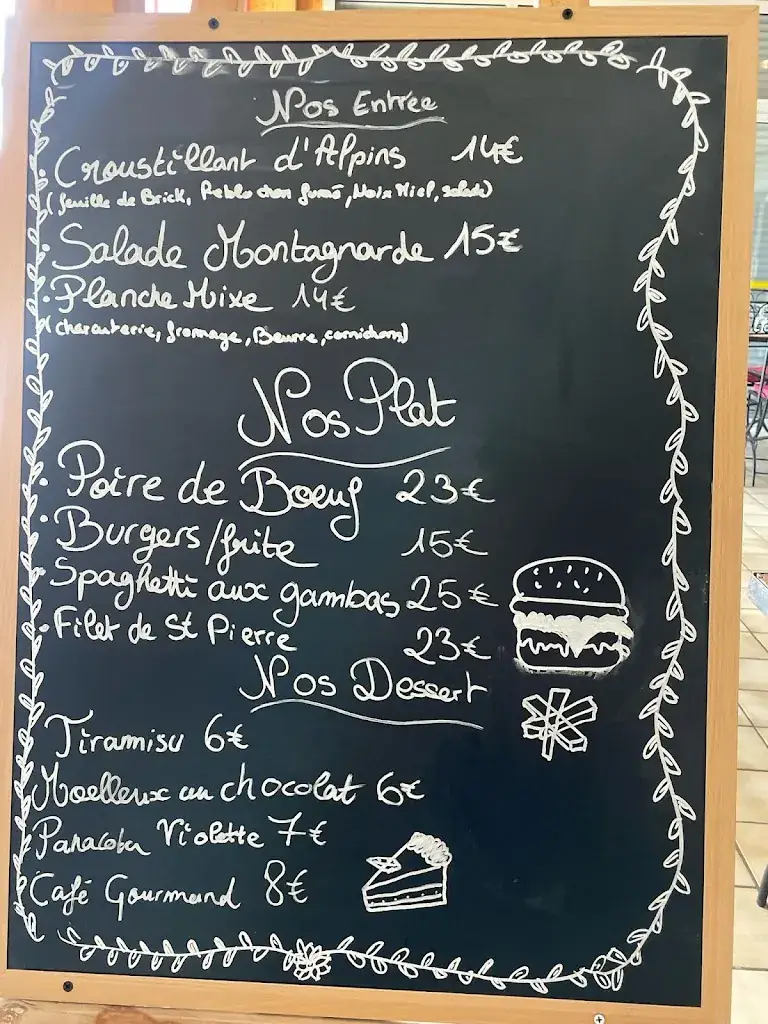 Nos Entrée
. Croustillant d'Alpins 14€
(feuille de Brick, Reblochon fumé, Noix Miel, salade)
. Salade Montagnarde 15€
. Planche Mixe 14€
(charcuterie, fromage, Beurre, cornichons)
Nos Plat
. Poire de Boeuf 23€
. Burgers/frite 15€
. Spaghetti aux gambas 25€
. Filet de St Pierre 23€
Nos Dessert
Tiramisu 6€
Moelleux au chocolat 6€
Panacota Violette 7€
Café Gourmand 8€